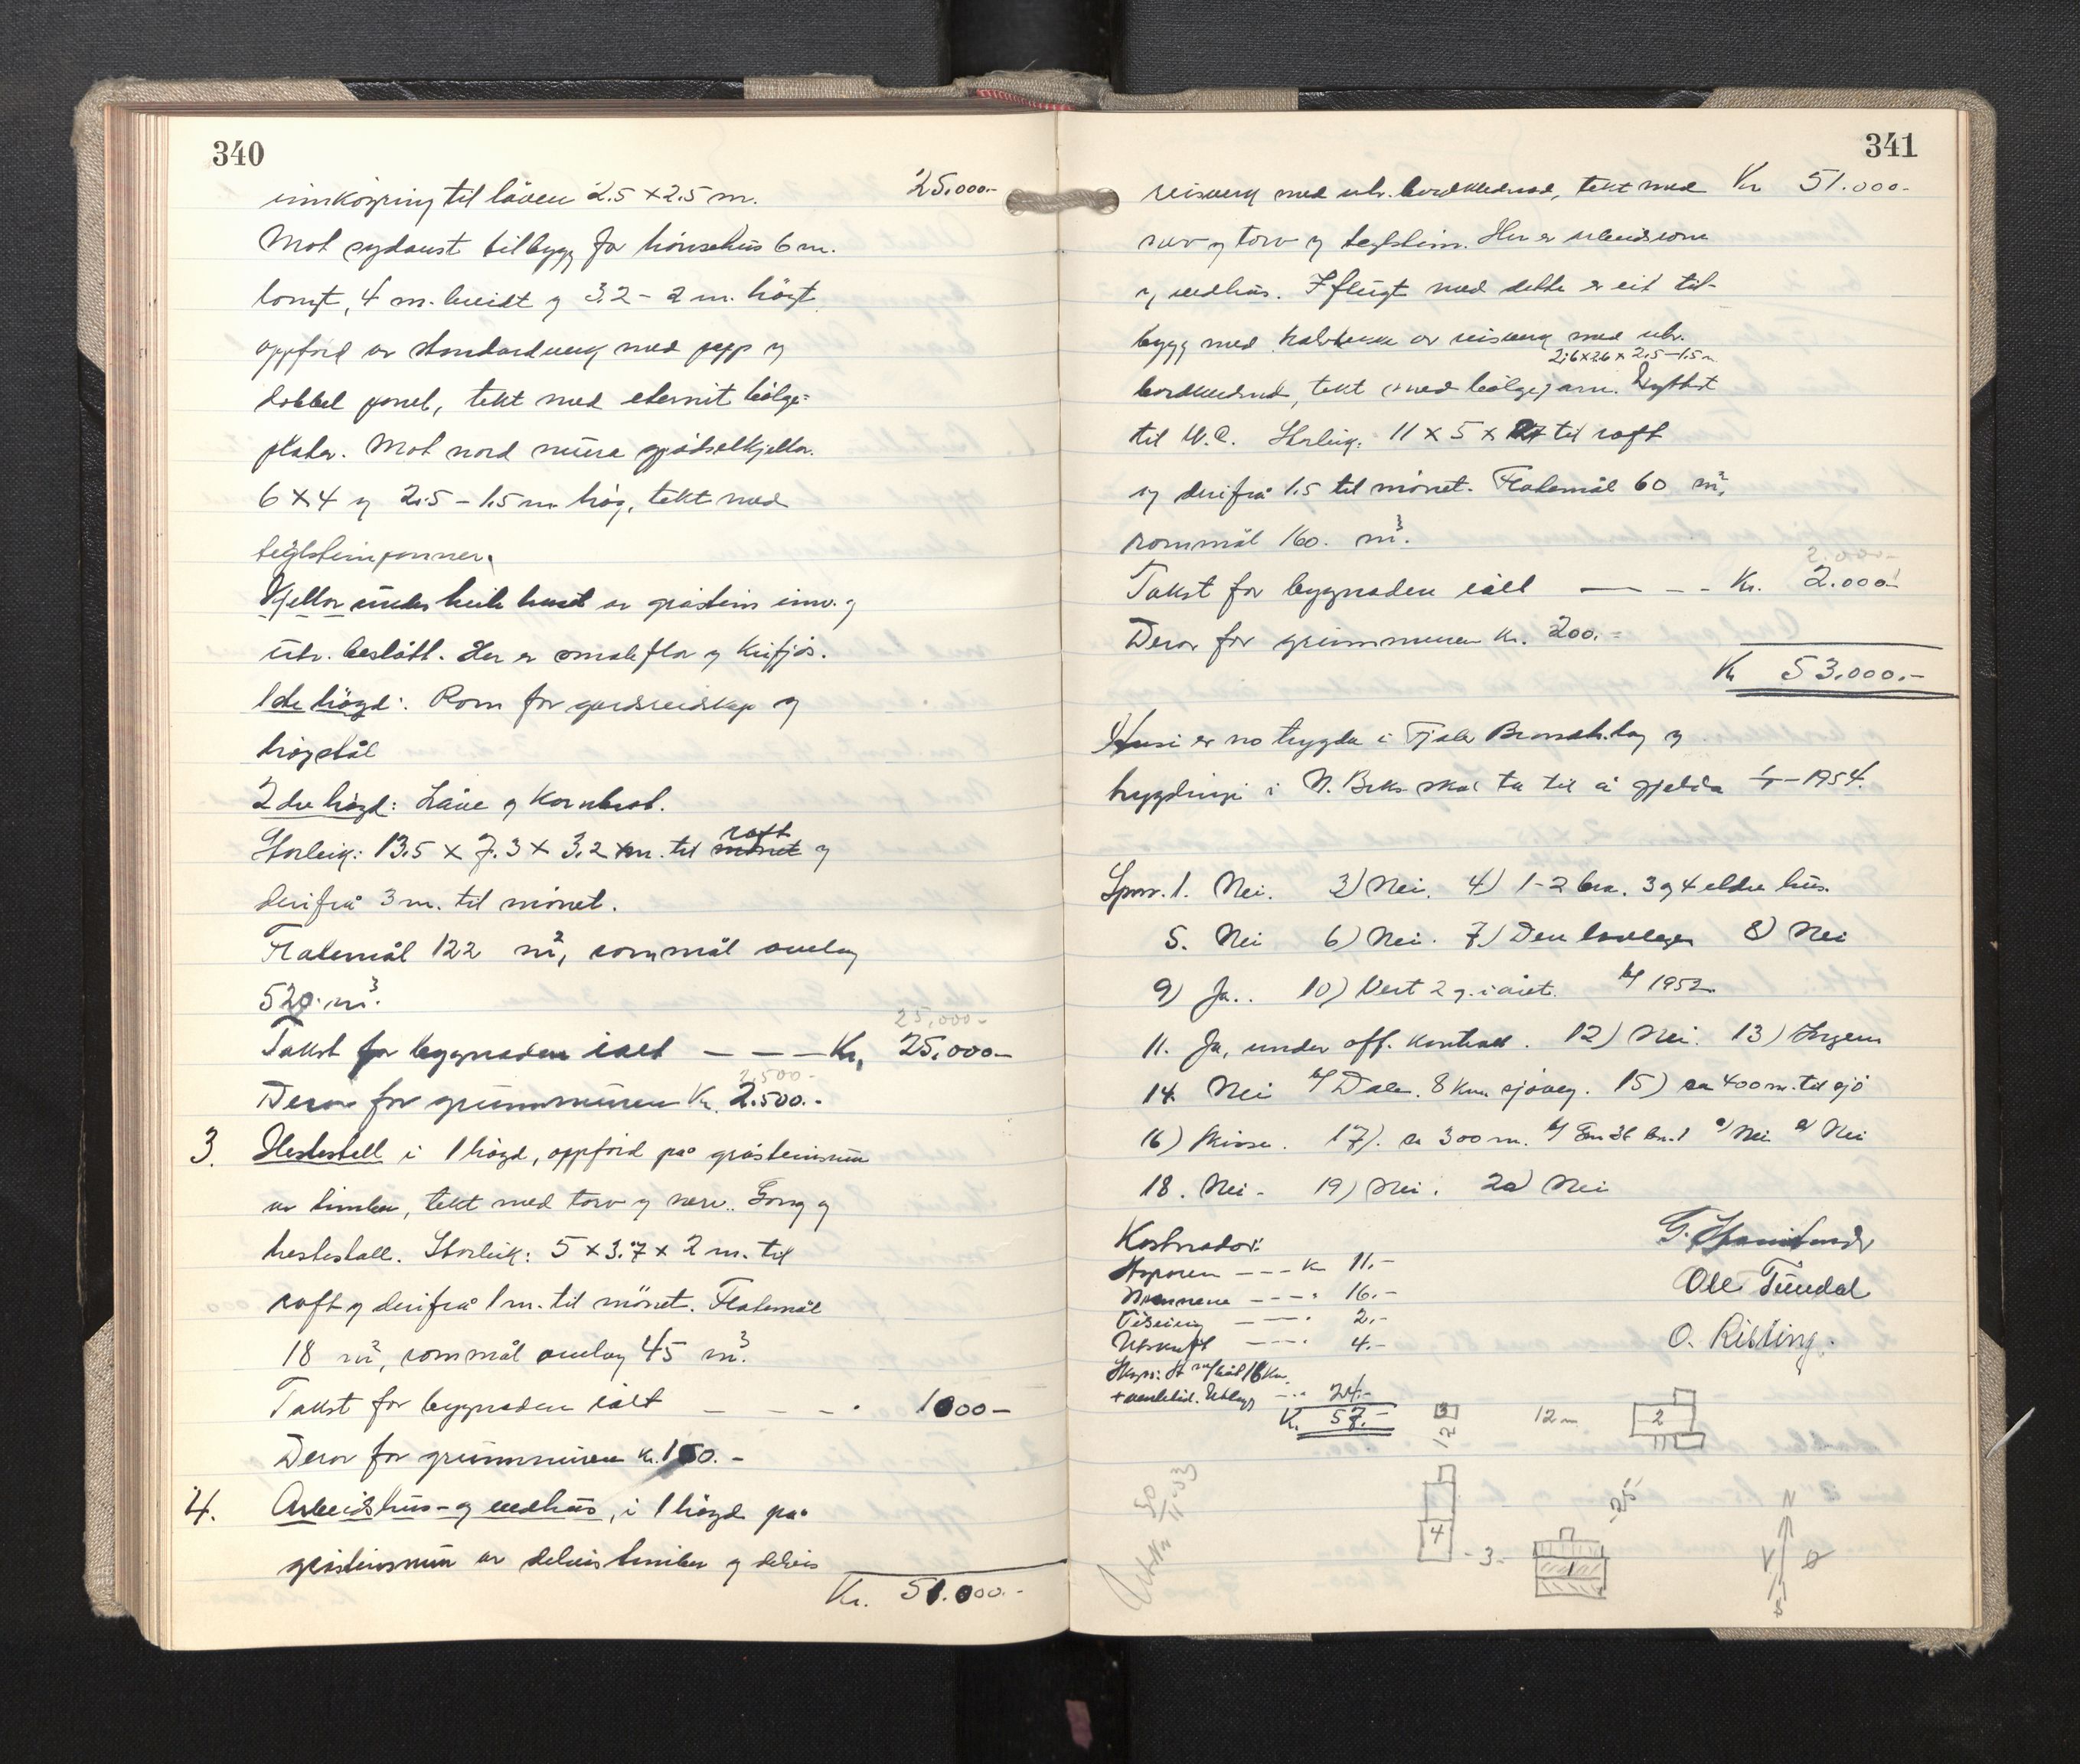 340
innköyring til låven 2.5 × 2.5 m. 25.000.-
Mot sydaust tilbygg for hönsehus 6 m.
langt, 4 m. breidt og 3.2 - 2 m. högt
oppförd av standardverk med papp og
dobbel panel, tekt med eternit bölge-
plater. Mot nord mura gjödselkjellar.
6 × 4 og 2.5 - 1.5 m hög, tekt med
teglsteinpanner.
Kjellar under heile huset av gråstein innv. og
utv. beslått. Her er smaleflor og kufjös.
1ste högd: Rom for gardsreidskap og
höystål
2dre högd: Låve og kornbrot.
Storleik: 13.5 × 7.3 × 3.2 m. til mönet raft og
derifrå 3 m. til mönet.
Flatemål 122 m², rommål omlag
520 m³.
25,000-
Takst for bygnaden ialt - - - Kr. 25.000.-
2,500-
Derav for grunnmuren Kr. 2.500.-
3. Hestestall i 1 högd, oppförd på gråsteinsmur
av timber, tekt med torv og næv. Gong og
hestestall. Storleik: 5 × 3.7 × 2 m. til
raft og derifrå 1 m. til mönet. Flatemål
18 m², rommål omlag 45 m³.
Takst for bygnaden ialt - - - 1000 -
Derav for grunnmuren kr. 150.-
4. Arbeidshus- og vedhus, i 1 högd på
gråsteinsmur av delvis timber og delvis
Kr. 51.000.-
341
reisverk med utv. bordklednad, tekt med Kr 51.000.-
næv og torv og teglstein. Her er arbeidsrom
og vedhus. I flugt med dette er eit til-
bygg med halvtekke av reisverk med utv.
2.6×2.6 × 2.5-1.5 m
bordklednad, tekt med bölgejarn. Nyttast
til W.C. Storleik: 11 × 5 × 2.7 til raft
og derifrå 1.5 til mönet. Flatemål 60 m²,
rommål 160. m³.
2.000-
Takst for bygnaden ialt - - - Kr. 2.000.-
Derav for grunnmuren kr. 200.-
Kr 53.000.-
Husi er no trygda i Fjaler Brandtr.lag og
trygdingi i N. Brks skal ta til å gjelda 1/1-1954.
Spm. 1. Nei. 3) Nei. 4) 1-2 bra. 3 og 4 eldre hus.
5. Nei 6) Nei. 7) Den lovlege 8) Nei
9) Ja.. 10) Vert 2 g. i året. b/ 1952.
11. Ja, under off. kontroll. 12) Nei. 13) Ingen
14. Nei b/ Dale. 8 km sjöveg. 15) ca 400 m. til sjö
16) 17). ca 300 m. b/ Gnr 36 bn. 1 c/ Nei d/ Nei
18. Nei - 19) Nei. 20) Nei
Kostnader:
- - - Kr 11.-
Mennene - - - " 16.-
- - - " 2.-
Utskrift - - - " 4.-
Skyss:
24.-
Kr. 57.-
G.
Ole Tundal
O. Risting.
3
12
12 m
2
4
- 3 -
1
- 25 -
N
V Ø
S
Utskr. 30/11-53